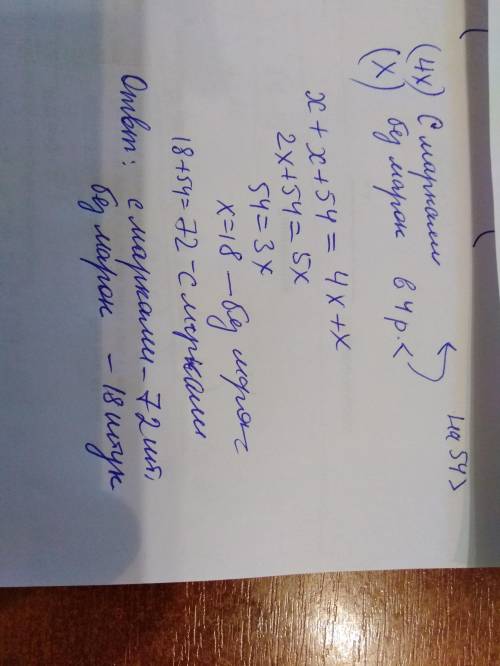 (4x) С марками
на 54 >
(x) без марок в 4 р. <
x + x + 54 = 4x + x
2x + 54 = 5x
54 = 3x
x = 18 – без марок
18 + 54 = 72 – с марками
Ответ: с марками – 72 шт,
без марок – 18 штук